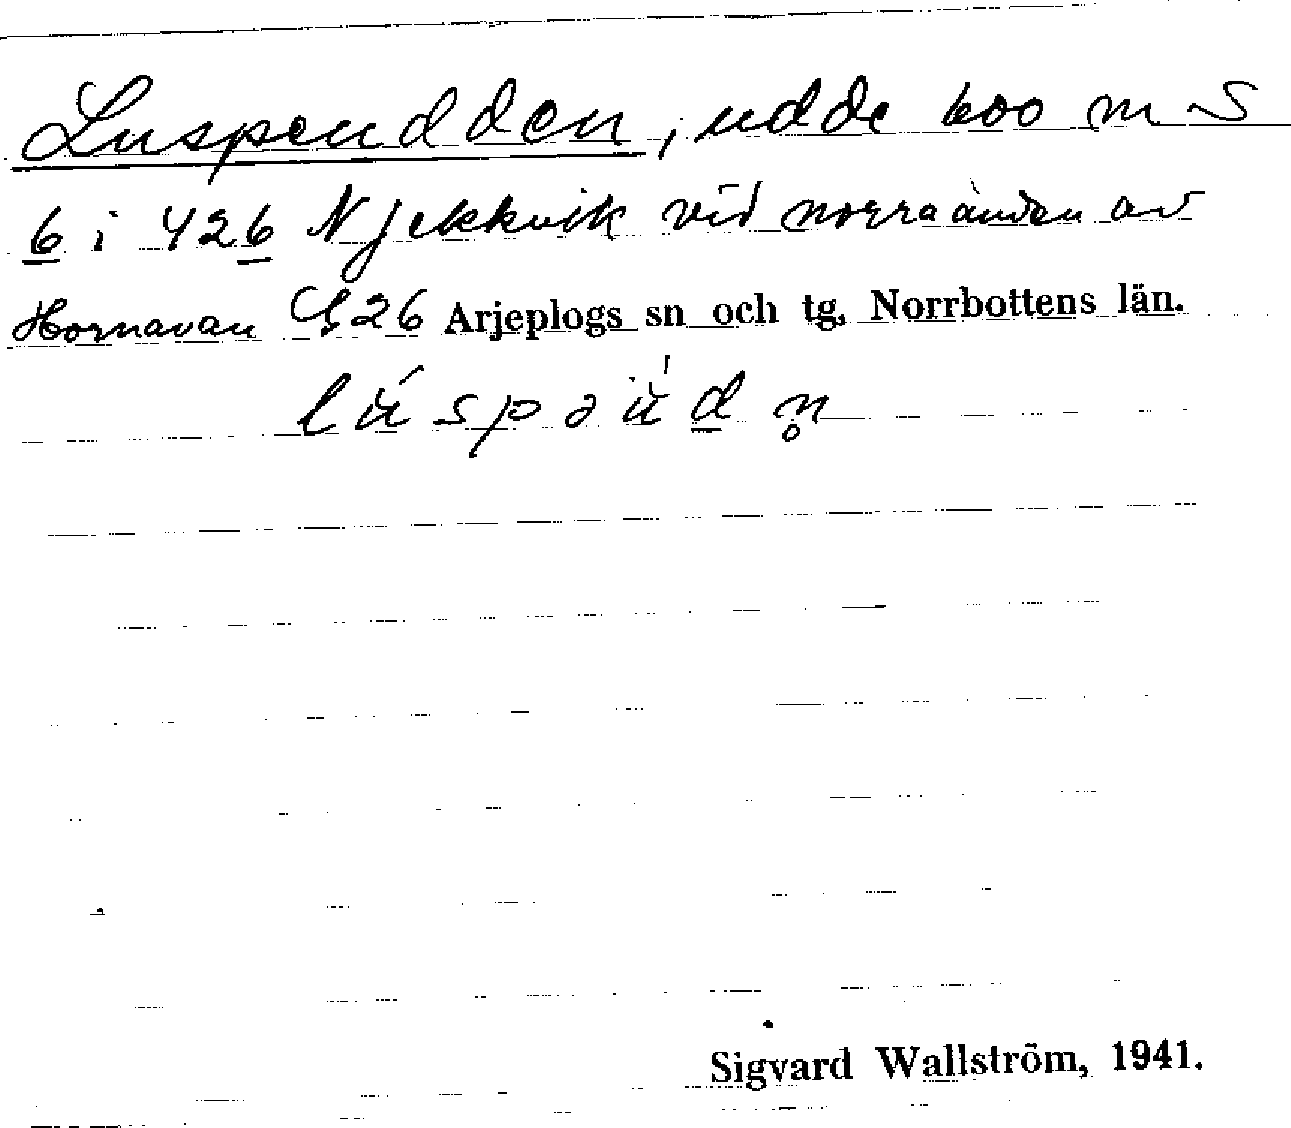 Luspendden, udde 600 m S
6 i 426 Njekkvik vid norra änden av
Hornavan 26 Arjeplogs sn och tg, Norrbottens län.
Sigvard Wallström, 1941.